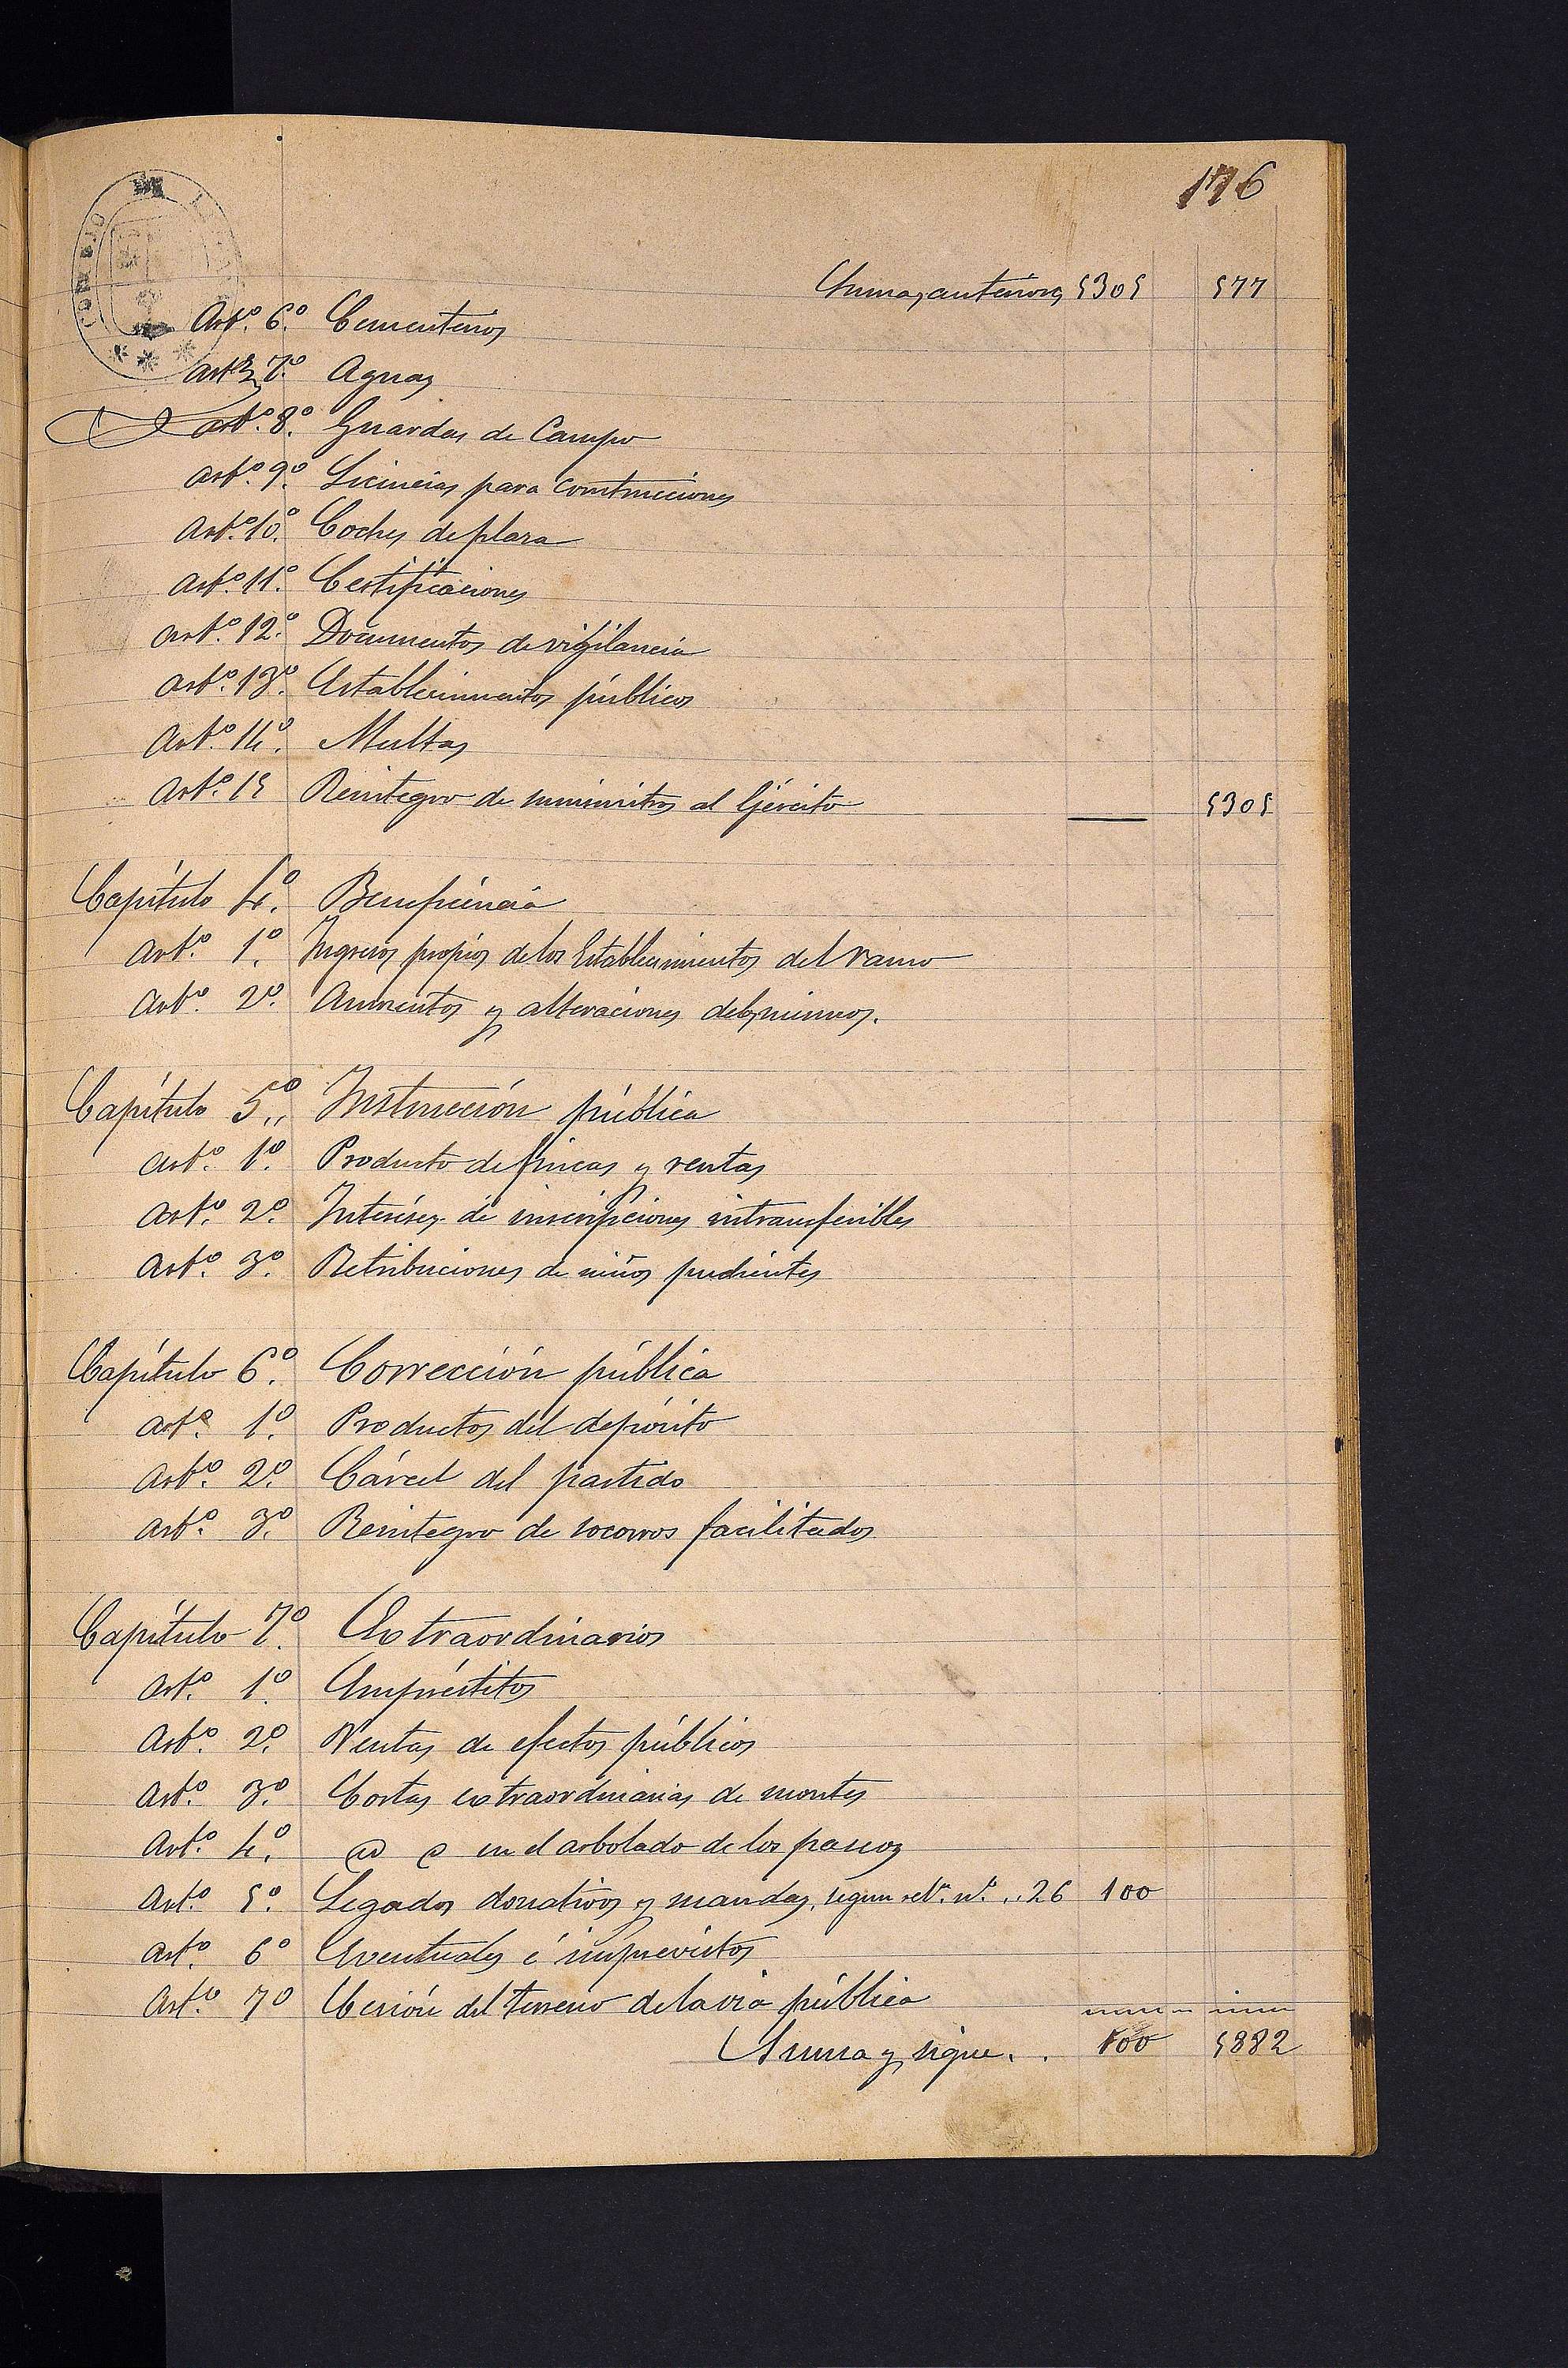 176
Sumas anteriores 5305 577
Artº. 6º. Cementerios
Artº. 7º. Aguas
Artº. 8º. Guardas de Campo
Artº. 9º. Licincias para construcciones
Artº. 10º. Coches de plaza
Artº. 11º. Certificaciones
Artº. 12º. Documentos de vigilancia
Artº. 13º. Establecimientos públicos
Artº. 14º. Multas
Artº. 15 Reintegro de suministros al Ejército 5305
Capítulo 4º. Beneficencia
Artº. 1º. Ingresos propios de los Establecimientos del ramo
Artº. 2º. Aumentos y alteraciones de los mismos.
Capítulo 5º.. Instrucción pública
Artº. 1º. Producto de fincas y rentas
Artº. 2º. Intereses de inscripciones intransferibles
Artº. 3º. Retribuciones de niños pudientes
Capítulo 6º. Corrección pública
Artº. 1º. Productos del depósito
Artº. 2º. Cárcel del partido
Artº. 3º. Reintegro de socorros facilitados
Capítulo 7º. Extraordinarios
Artº. 1º. Empréstitos
Artº. 2º. Ventas de efectos públicos
Artº. 3º. Cortas extraordinarias de montes
Artº. 4º. en el arbolado de los paseos
Artº. 5º. Legados donativos y mandas, segun relⁿ. nº. .. 26 100
Artº. 6º Eventuales é imprevistos
Artº. 7º Cesión del terreno de la via pública
Suma y sigue. . 100 5882